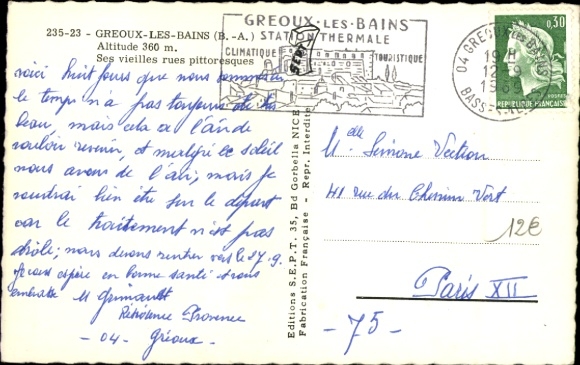 235-23 - GREOUX-LES-BAINS (B.-A.)
Altitude 360 m.
Ses vieilles rues pittoresques
voici huit jours que nous sommes
le temps n'a pas toujours été
beau, mais cela a l'air de
vouloir revenir, et malgré le soleil
nous avons de l'air; mais je
voudrai bien être sur le départ
car le traitement n'est pas
drôle; nous devons rentrer vers le 17.9.
espère en bonne santé
embrasse M Grimault
Résidence Provence
- 04 - Gréoux -
GREOUX-LES-BAINS
STATION THERMALE
CLIMATIQUE TOURISTIQUE
SEPT
04 GREOUX LES BAINS
19 H
12-9
1969
BASSES-ALPES
0,30
REPUBLIQUE FRANÇAISE
POSTES
Editions S.E.P.T. 35, Bd Gorbella NICE
Fabrication Française - Repr. Interdite
Mlle Simone
41 rue du Chemin Vert
Paris XII
- 75 -
12€